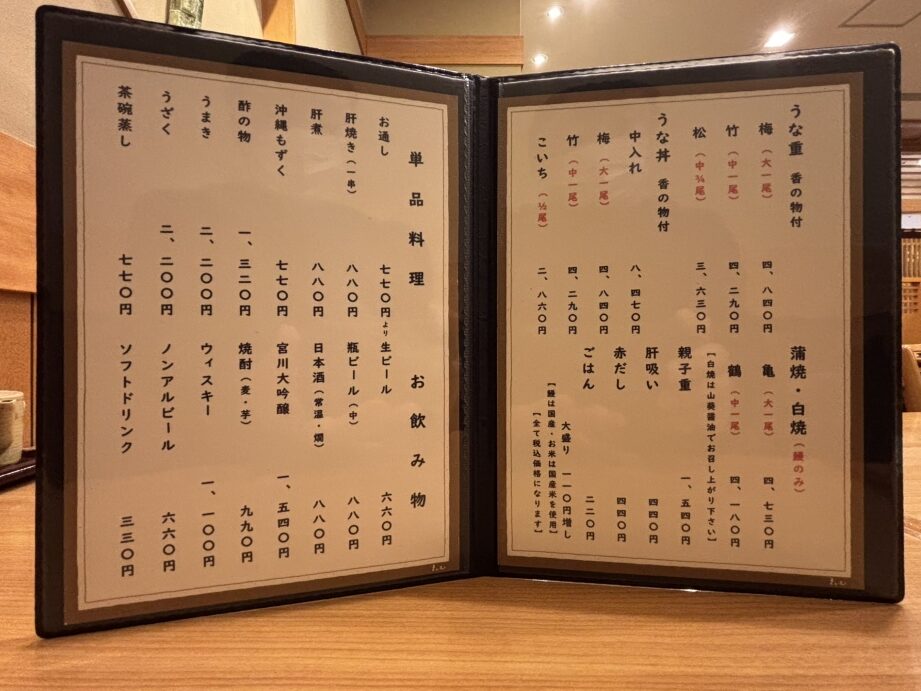 うな重 香の物付
梅(大一尾) 四、八四〇円
竹(中一尾) 四、二九〇円
松(中¾尾) 三、六三〇円
うな丼 香の物付
中入れ 八、四七〇円
梅(大一尾) 四、八四〇円
竹(中一尾) 四、二九〇円
こいち(½尾) 二、八六〇円
蒲焼・白焼(鰻のみ)
亀(大一尾) 四、七三〇円
鶴(中一尾) 四、一八〇円
【白焼は山葵醤油でお召し上がり下さい】
親子重 一、五四〇円
肝吸い 四四〇円
赤だし 四四〇円
ごはん 二二〇円
大盛り 一一〇円増し
【鰻は国産・お米は国産米を使用】
【全て税込価格になります】
単品料理
お通し 七七〇円より
肝焼き(一串) 八八〇円
肝煮 八八〇円
沖縄もずく 七七〇円
酢の物 一、三二〇円
うまき 二、二〇〇円
うざく 二、二〇〇円
茶碗蒸し 七七〇円
お飲み物
生ビール 六六〇円
瓶ビール(中) 八八〇円
日本酒(常温・燗) 八八〇円
宮川大吟醸 一、五四〇円
焼酎(麦・芋) 九九〇円
ウィスキー 一、一〇〇円
ノンアルビール 六六〇円
ソフトドリンク 三三〇円